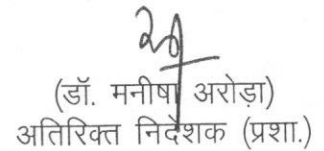 (डॉ. मनीषा अरोड़ा)
अतिरिक्त निदेशक (प्रशा.)